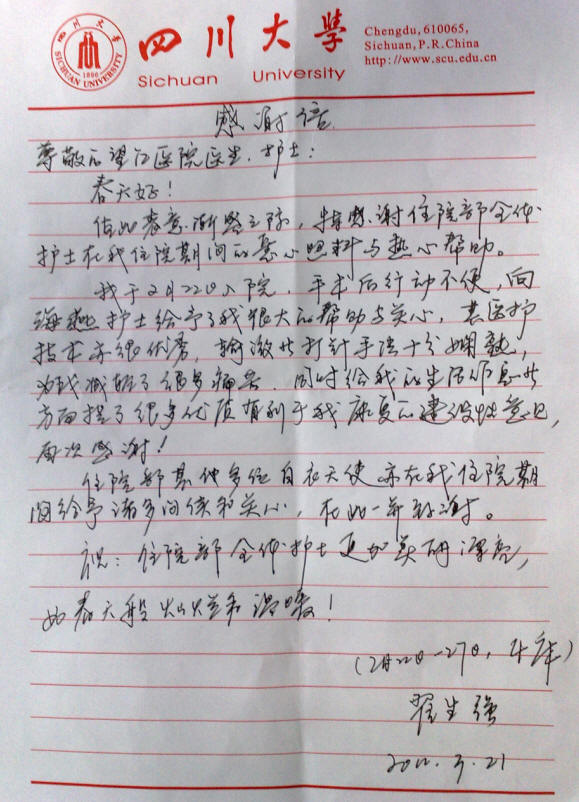 四川大学
SICHUAN UNIVERSITY
1896
四川大學
Sichuan University
Chengdu, 610065,
Sichuan, P.R.China
http://www.scu.edu.cn
感谢信
尊敬的望江医院医生、护士：
春天好！
值此春意渐盎之际，特感谢住院部全体
护士在我住院期间的悉心照料与热心帮助。
我于2月22日入院，手术后行动不便，向
海燕护士给予了我很大的帮助与关心，其医护
技术亦很优秀，输液与打针手法十分娴熟，
为我减轻了很多痛苦，同时给我的生活作息等
方面提了很多优质有利于我康复的建设性意见，
再次感谢！
住院部其他多位白衣天使亦在我住院期
间给予诸多问候和关心，在此一并致谢。
祝：住院部全体护士更加美丽漂亮，
如春天般灿烂和温暖！
(2月22日-27日，
翟生强
3.21